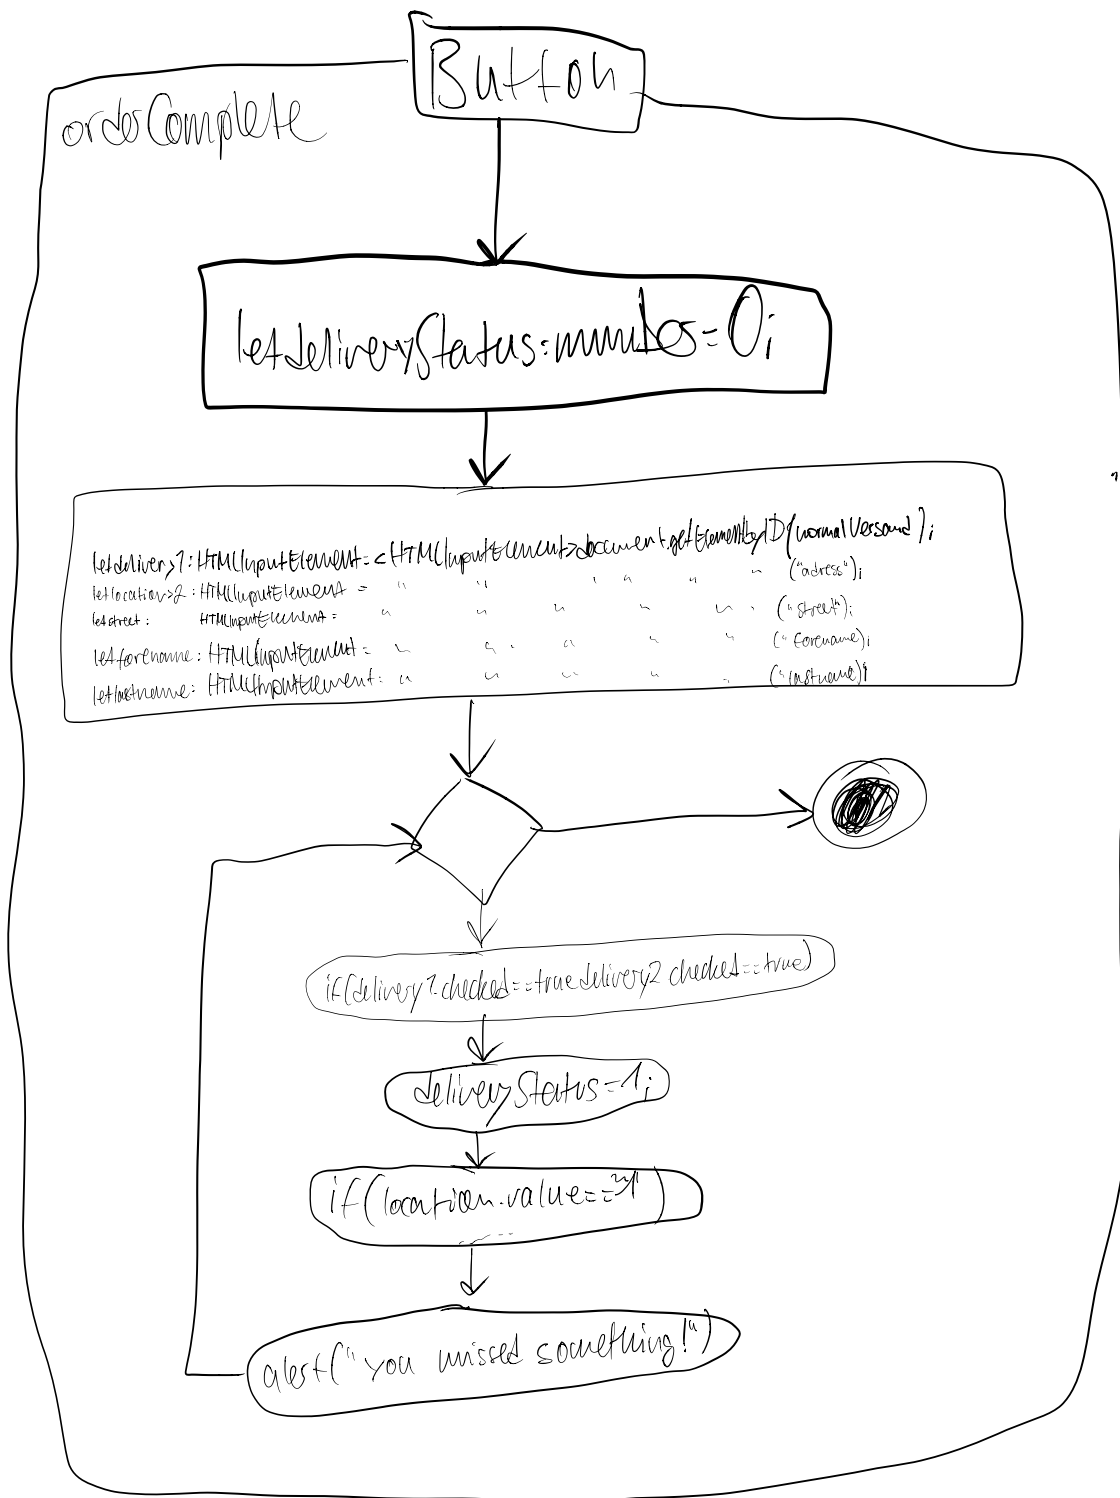 Button
orderComplete
let deliveryStatus: = 0;
let delivery1: HTMLInputElement = <HTMLInputElement> document.getElementbyID(normalVersand);
let location2: HTMLInputElement = " " " " " " ("adress");
let street: HTMLInputElement = " " " " " . ("street");
let forename: HTMLInputElement = " " . " " " ("forename);
let lastname: HTMLInputElement: " " " " " ("lastname");
if(delivery1.checked==true delivery2 checked==true)
deliveryStatus=1;
if(location.value=="")
alert("you missed something!")